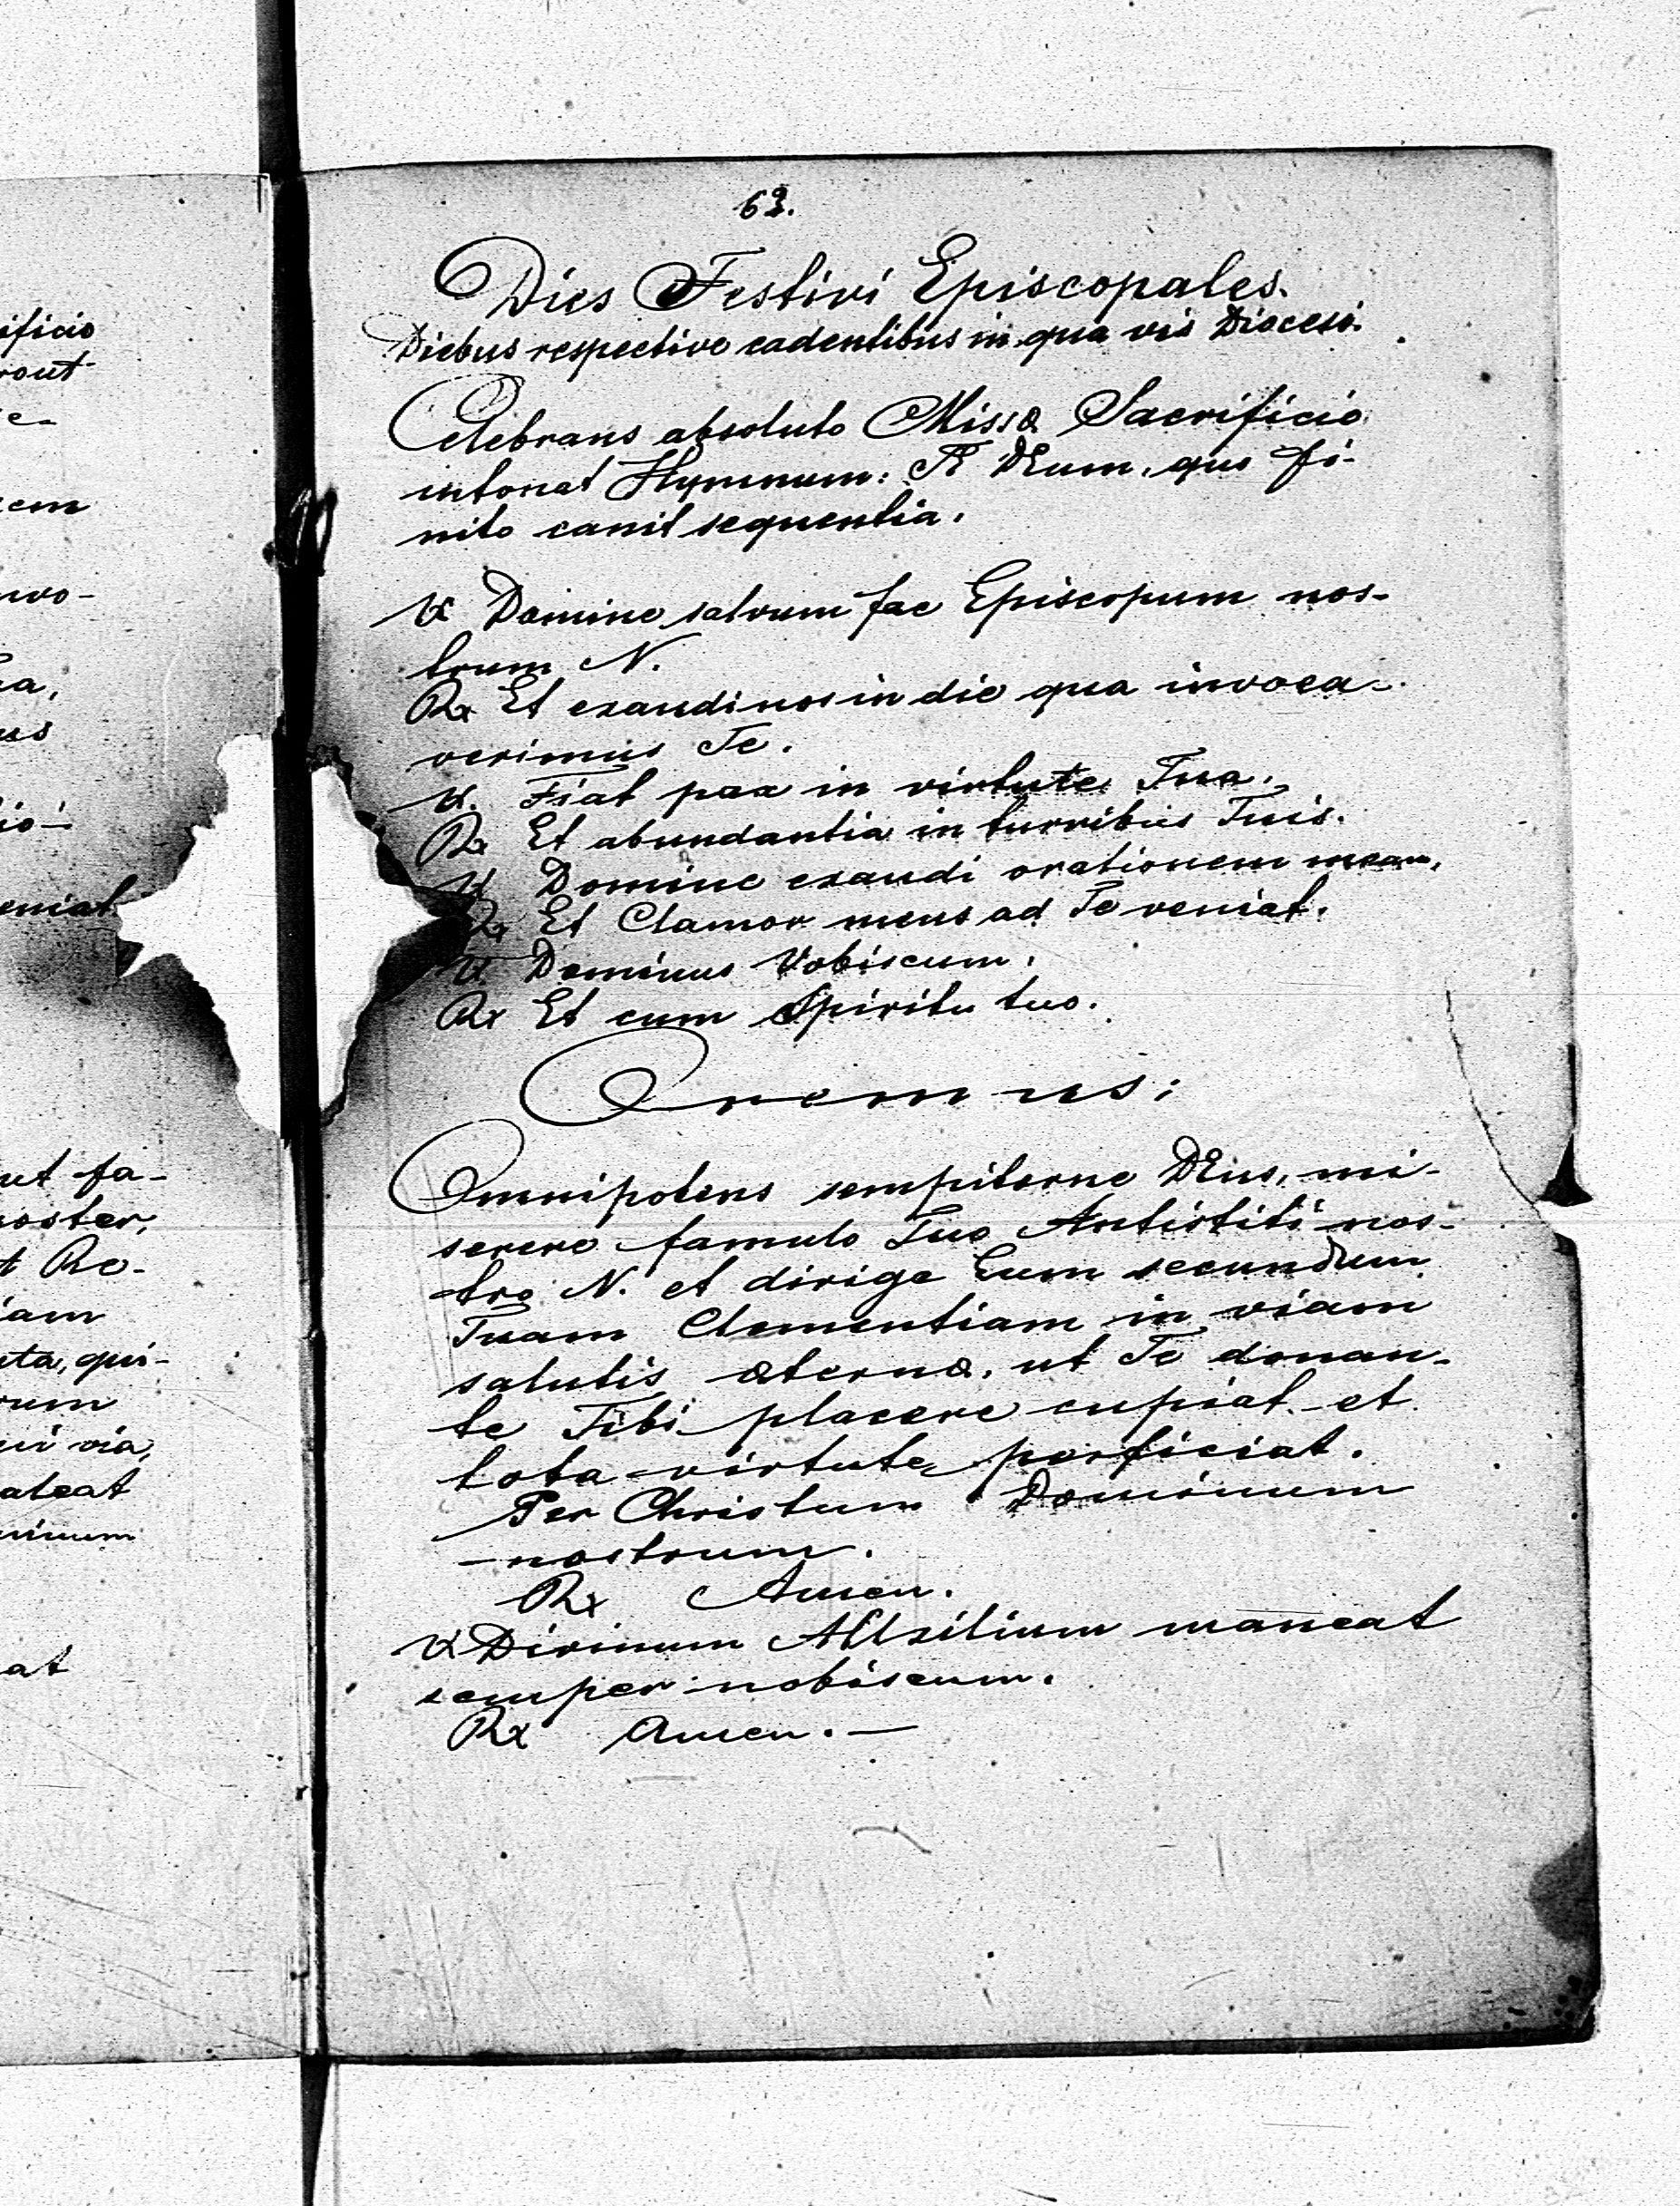 ificio
rout
e-
em
nvo-
a,
us
io-
eniat
ut fa-
noster,
t Re-
iam
ta, qui-
rum
ui via,
aleat
minum
at
63.
Dies Festivi Episcopales.
Diebus respective cadentibus in qua vis Diocesi.
Celebrans absoluto Missæ Sacrificio
intonat Hymnum: Te DEum, quo fi-
nito canit sequentia.
℣ Domine salvum fac Episcopum nos-
trum N.
℟ Et exaudi nos in die qua invoca-
verimus Te.
℣. Fiat pax in virtute Tua.
℟ Et abundantia in turribus Tuis.
℣ Domine exaudi orationem meam.
℟ Et Clamor meus ad Te veniat.
℣ Dominus Vobiscum.
℟ Et cum Spiritu tuo.
Oremus:
Omnipotens sempiterne DEus, mi-
serere famulo Tuo Antistiti nos-
tro N. et dirige Eum secundum
Tuam Clementiam in viam
salutis æternæ, ut Te donan-
te Tibi placere cupiat et
tota virtute perficiat.
Per Christum Dominum
nostrum.
℟ Amen.
℣ Divinum AUxilium maneat
semper nobiscum.
℟ Amen. —